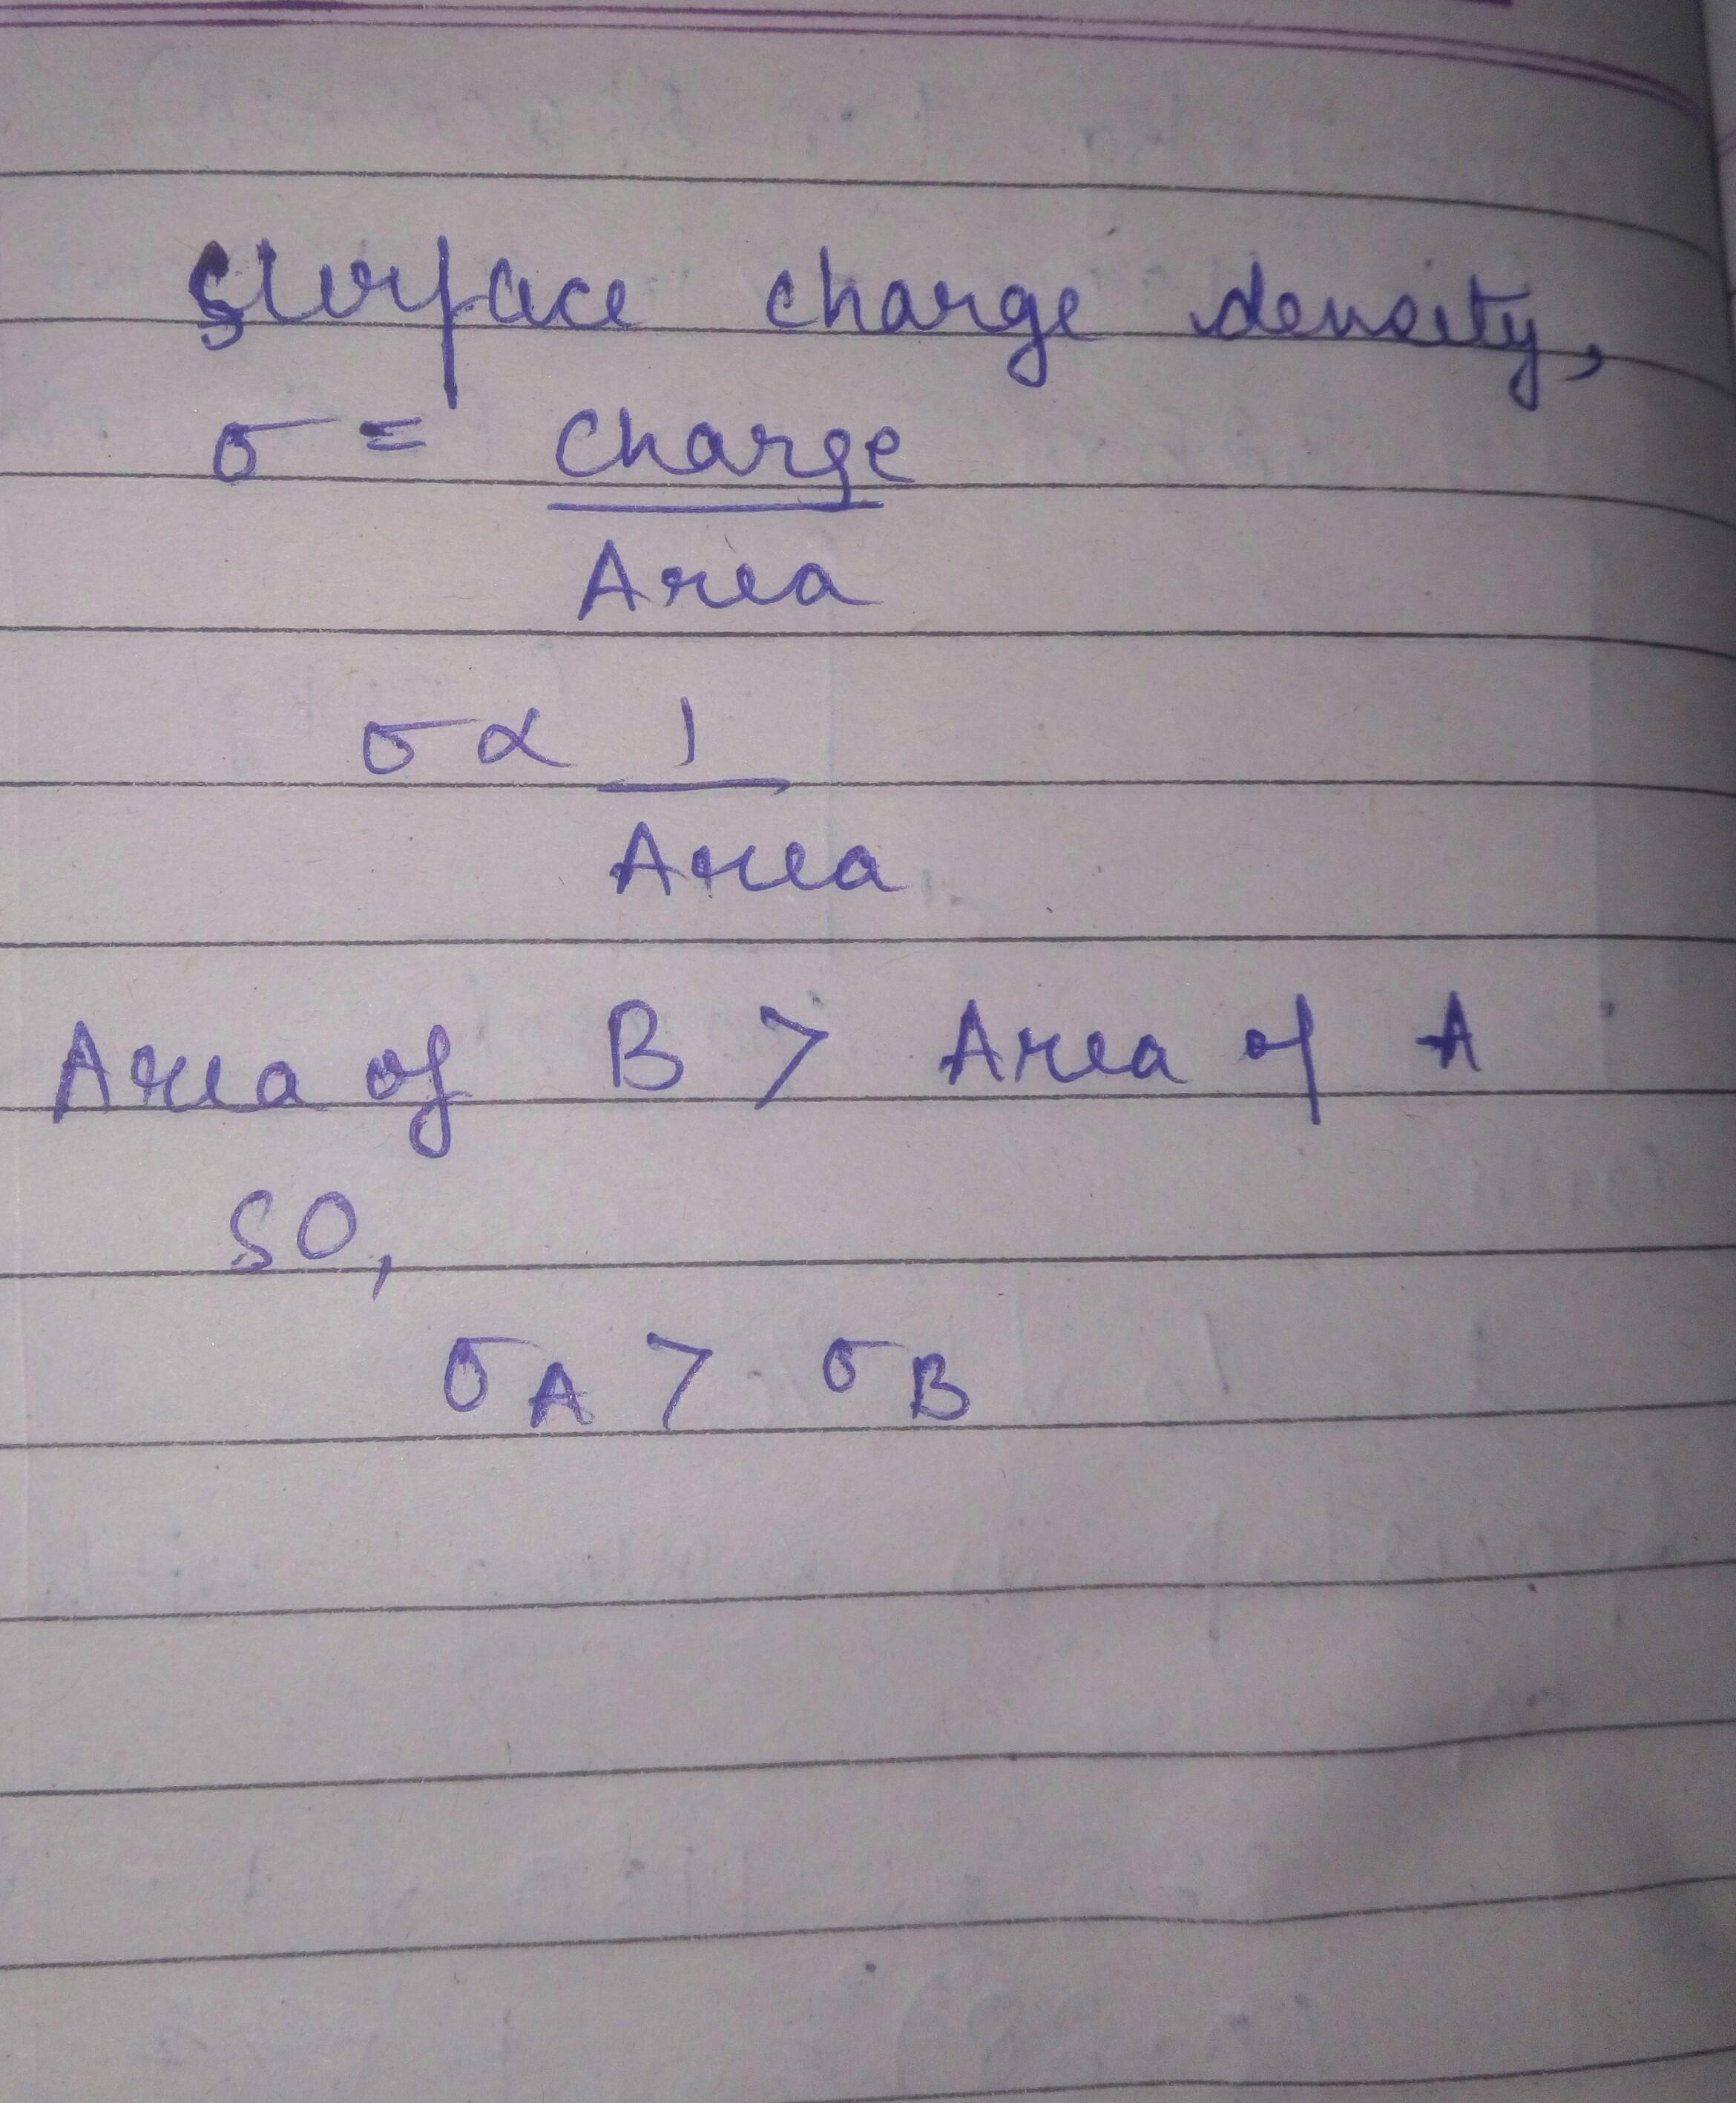 Surface charge density,
σ = charge
Area
σ ∝ 1
Area
Area of B > Area of A
SO,
σA > σB